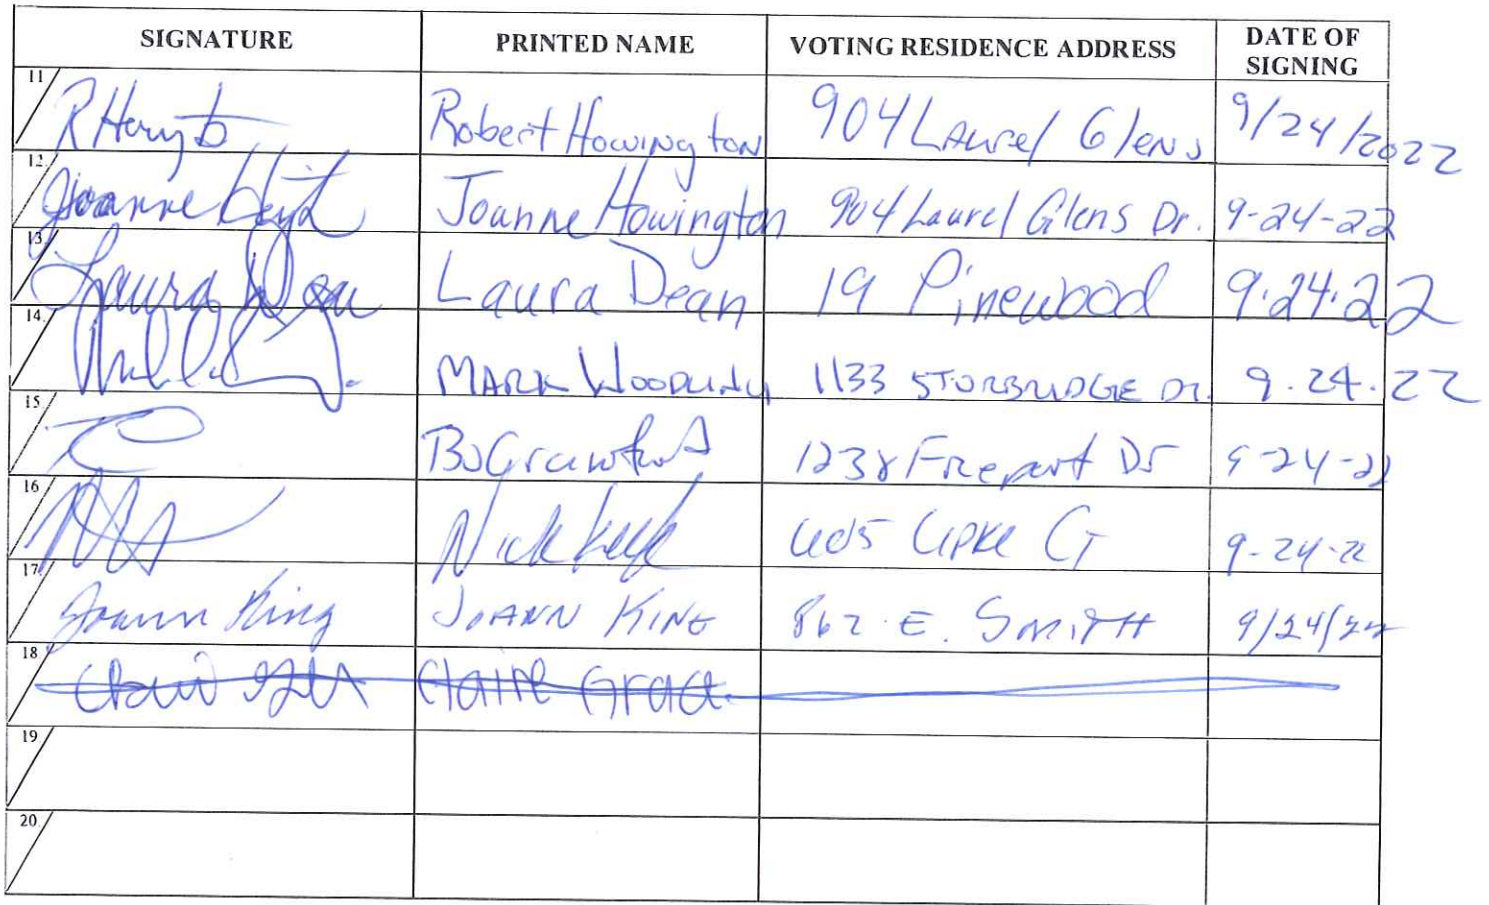 SIGNATURE PRINTED NAME VOTING RESIDENCE ADDRESS DATE OF SIGNING
11 Robert Howington 904 Laurel Glens 9/24/2022
12 Joanne Joanne Howington 904 Laurel Glens Dr. 9-24-22
13 Laura Dean Laura Dean 19 Pinewood 9.24.22
14 MARK 1133 STURBRIDGE DR. 9.24.22
15 Bo Crawford 1238 Freeport Dr 9-24-22
16 Nick CT 9-24-22
17 Joann King JOANN KING 862 E. SMITH 9/24/22
18 Claire Grace
19
20